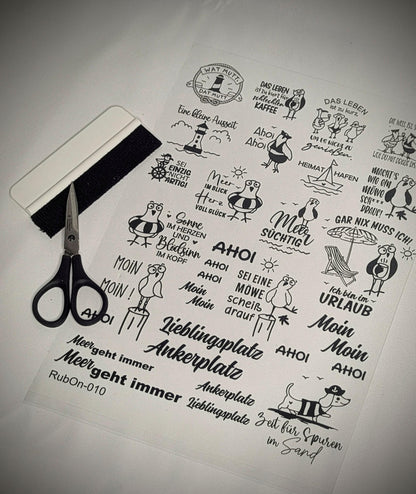 WAT MUTT,
DAT MUTT
DAS LEBEN
ist zu kurz für
schlechten
KAFFEE
DAS LEBEN
ist zu kurz,
UM ES NICHT ZU
genießen
Eine kleine Auszeit
Ahoi
Ahoi
SEI
EINZIG
NICHT
ARTIG!
Meer
IM BLICK
Herz
VOLL GLÜCK
HEIMAT HAFEN
MACHT'S
WIE 'NE
MÖWE
DRAUF!
Sonne
IM HERZEN
UND
Blödsinn
IM KOPF
Meer
SÜCHTIG
GAR NIX MUSS ICH!
AHOI
AHOI
AHOI
MOIN
MOIN!
Moin
Moin
SEI EINE
MÖWE
scheiß
drauf
Ich bin im
URLAUB
AHOI
AHOI
Lieblingsplatz
Ankerplatz
AHOI
Moin
Moin
Meer geht immer
Meer geht immer
RubOn-010
Ankerplatz
Lieblingsplatz
Zeit für Spuren
im Sand